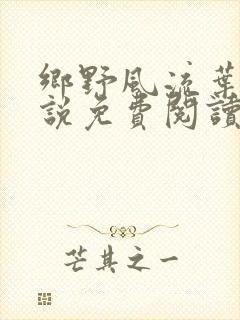 鄉野風流葉
說免費閱讀
芒其之一